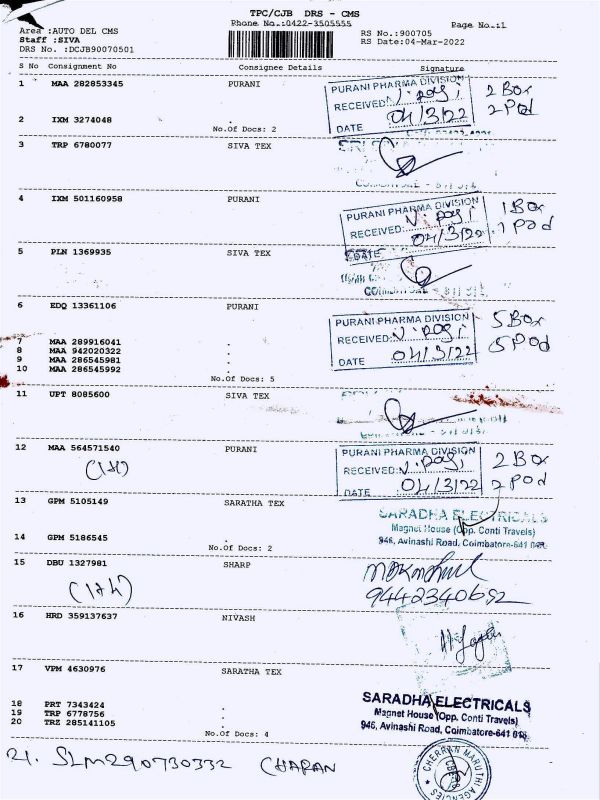 TPC/CJB DRS - CMS
Phone No.:0422-3505555
Page No.:1
Area :AUTO DEL CMS
Staff :SIVA
DRS No. :DCJB90070501
RS No.:900705
RS Date:04-Mar-2022
S No Consignment No Consignee Details Signature
1 MAA 282853345 PURANI
PURANI PHARMA DIVISION
RECEIVED:
DATE 04/3/22
2 Box
2 Pod
2 IXM 3274048 .
No.Of Docs: 2
3 TRP 6780077 SIVA TEX
4 IXM 501160958 PURANI
PURANI PHARMA DIVISION
RECEIVED:
04/3/22
1 Box
1 Pod
5 PLN 1369935 SIVA TEX
DATE
6 EDQ 13361106 PURANI
PURANI PHARMA DIVISION
RECEIVED:
DATE 04/3/22
5 Box
5 Pod
7 MAA 289916041 .
8 MAA 942020322 .
9 MAA 286545981 .
10 MAA 286545992 .
No.Of Docs: 5
11 UPT 8085600 SIVA TEX
12 MAA 564571540 PURANI
PURANI PHARMA DIVISION
RECEIVED:
DATE 04/3/22
2 Box
2 Pod
13 GPM 5105149 SARATHA TEX
SARADHA ELECTRICALS
Magnet House (Opp. Conti Travels)
946, Avinashi Road, Coimbatore-641 018.
14 GPM 5186545 .
No.Of Docs: 2
15 DBU 1327981 SHARP
9442340652
16 HRD 359137637 NIVASH
17 VPM 4630976 SARATHA TEX
18 PRT 7343424 .
19 TRP 6778756 .
20 TRZ 285141105 .
No.Of Docs: 4
SARADHA ELECTRICALS
Magnet House (Opp. Conti Travels)
946, Avinashi Road, Coimbatore-641 018.
21. SLM290730332 CHARAN
CHERRAN MARUTHI AGENCIES